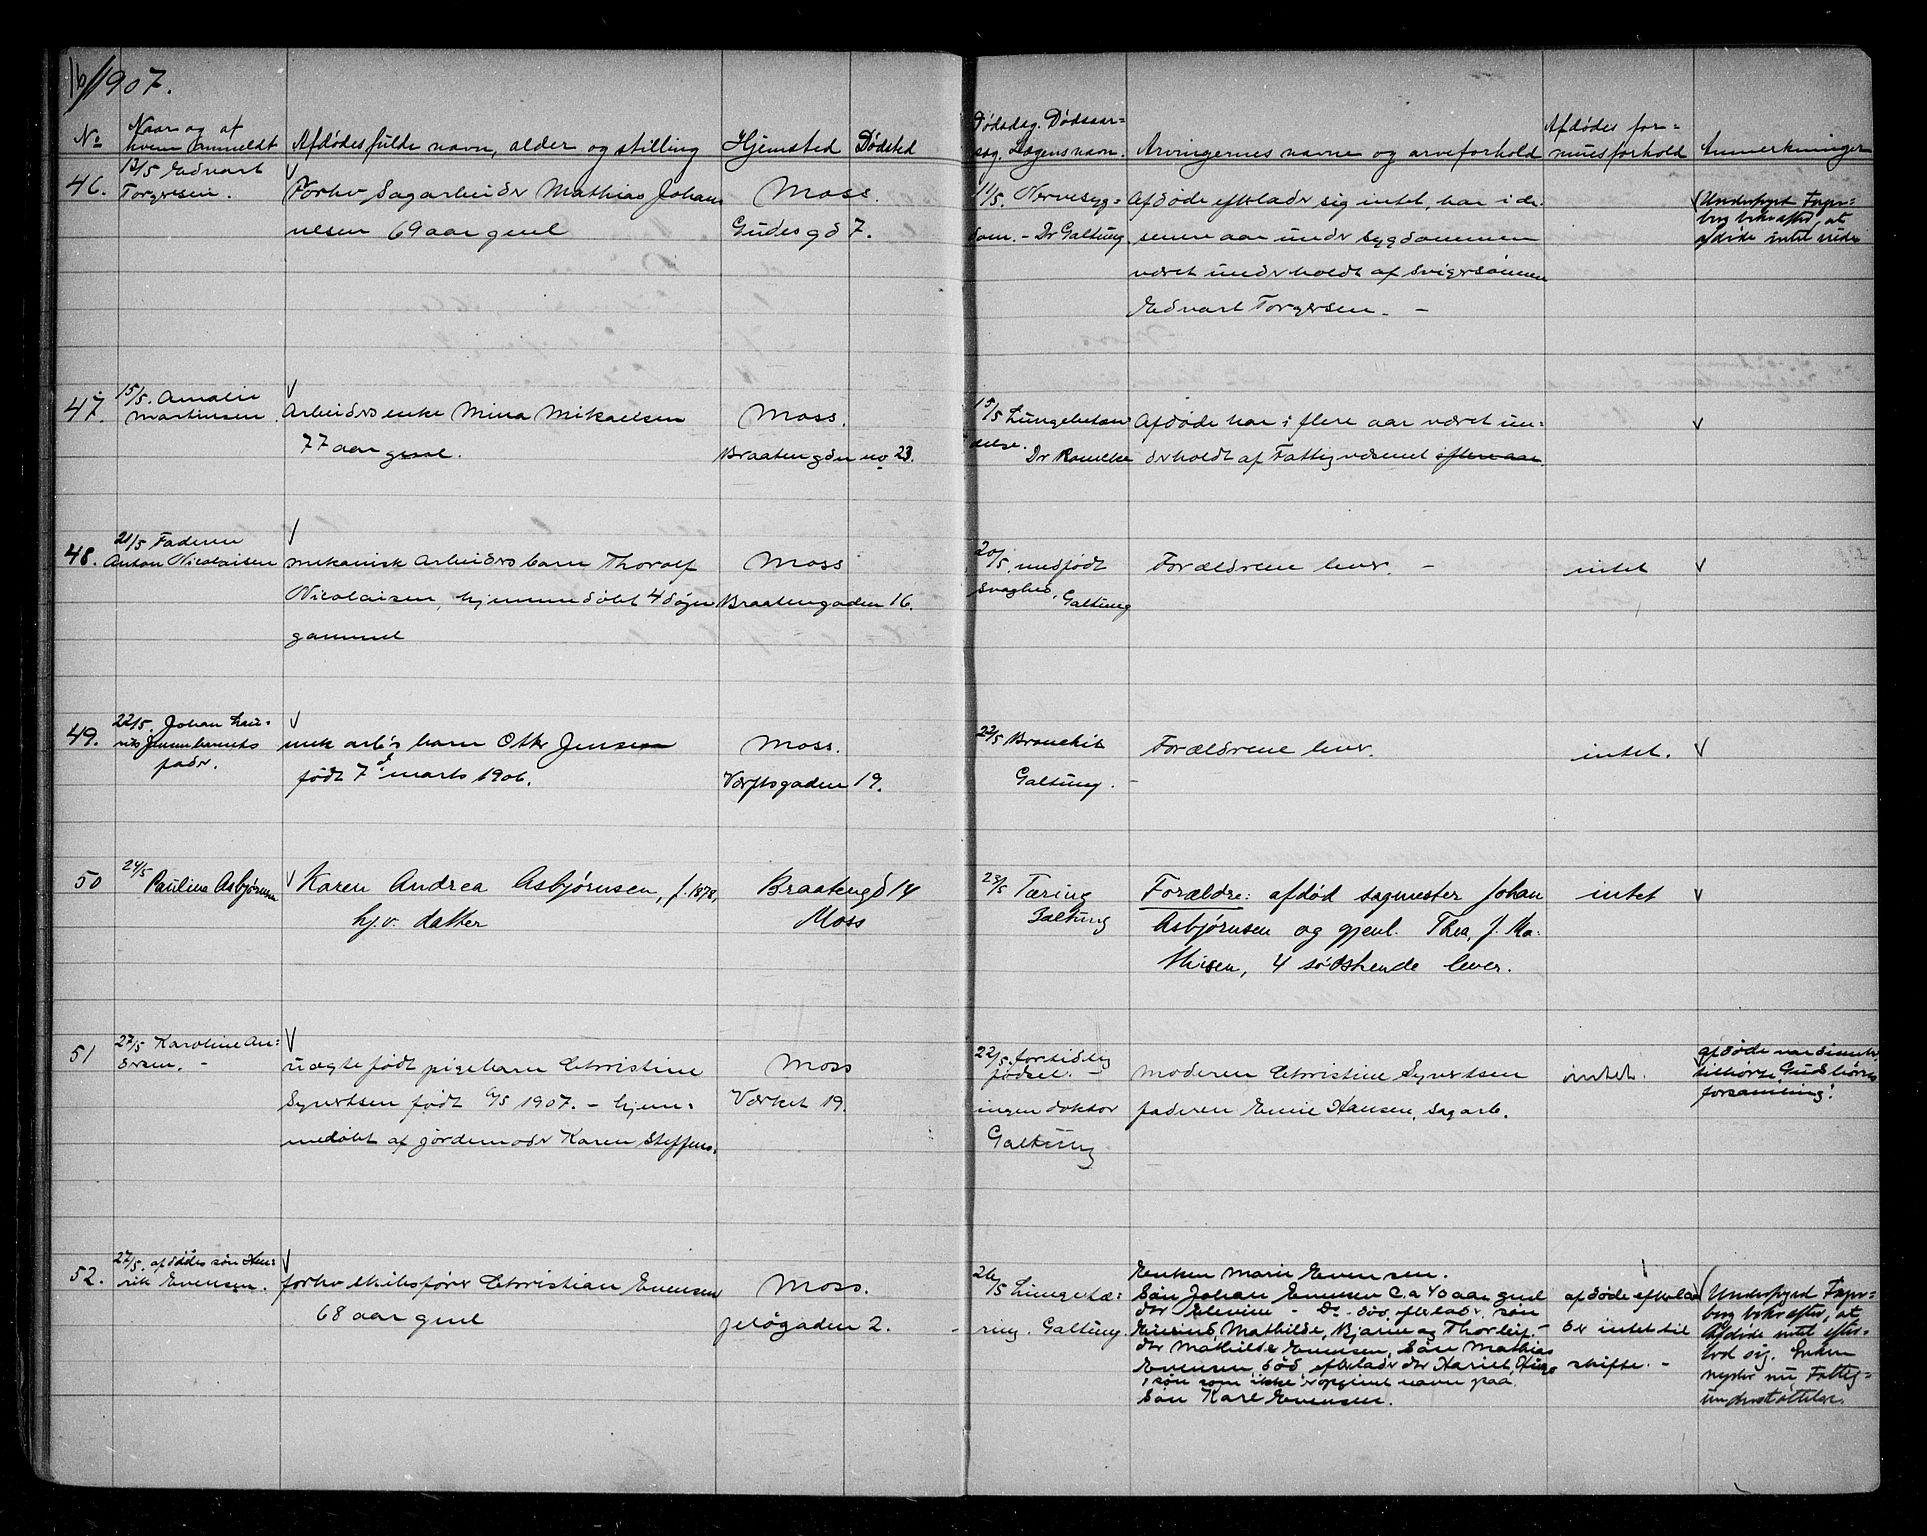 16/1907.
No
Naar og af
hvem anmeldt
Afdødes fulde navn, alder og stilling
Hjemsted
Dødsted
Dødsdag. Dødsaar=
sag. Lægens navn.
Arvingernes navne og arveforhold
Afdødes for=
muesforhold
Anmerkninger
46.
12/5 Edvart
Torgersen.
Forhv Sagarbeider Mathias Johan
nesen 69 aar gml
Moss.
Gudes gd 7.
11/5. Nervesyg=
dom. – Dr Galtung
Afdøde efterlader sig intet, har i de
senere aar under sygdommen
været underholdt af Svigersønnen
Edvart Torgersen. –
Underfoged
bekræfter, at
afdøde intet
47.
15/5. Amalie
Martinsen.
Arbeiders enke Mina Mikaelsen
77 aar gml.
Moss.
Braatengden no 23.
15/5 Lungebetæn
delse.
Dr
Afdøde har i flere aar været un=
derholdt af Fattigvæsenet i flere aar.
48.
21/5 Faderen
Anton Nicolaisen
mekanisk arbeiders barn Thoralf
Nicolaisen, hjemmedøbt 4 døgn
gammel
Moss
Braatengaden 16.
20/5. medfødt
svaghed, Galtung
Forældrene lever. –
intet
49.
22/5. Johan Hen=
riks Jensen barnets
fader.
mek arb's barn Otto Jensen
født 7de marts 1906.
Moss.
Værftsgaden 19.
22/5 Bronchit
Galtung. –
Forældrene lever.
intet.
50
24/5
Pauline Asbjørnsen
Karen Andrea Asbjørnsen, f. 1878,
hj.v. datter
Braatengd 14
Moss
23/5 Tæring
Galtung
Forældre: afdød sagmester Johan
Asbjørnsen og gjenl. Thea, f. Ma=
thisen, 4 sødskende lever.
intet
51
27/5 Karoline An=
dersen. –
uægte født pigebarn Christine
Syvertsen født 6/5 1907. – hjem=
medøbt af jordemoder Karen Steffens.
Moss
Værket 19.
22/5. fortidlig
fødsel. –
ingen doktor
Galtung
moderen Christine Syvertsen
faderen Emil Hansen, sagarb.
intet.
afdøde var
tilhørte
forsamling!
52.
27/5. afdødes søn Hen=
rik Evensen.
forhv skibsfører Christian Evensen
68 aar gml
Moss.
Jeløgaden 2.
26/5 Lungetæ=
ring. Galtung
Enken Marie Evensen.
Søn Johan Evensen c.a 40 aar gml
dtr Elevine – Do. død, efterlader søn
Mathilde, Bjarne og Thorleif. –
dtr Mathilde Evensen, søn Mathias
Evensen død efterlader dtr Hariet
1 søn som ikke er opgivet navn paa
Søn Karl Evensen.
afdøde efterlad
er intet til
skifte. –
Underfoged
bekræfter, at
Afdøde intet efter=
lod sig. Enken
nyder nu Fattig=
understøttelse.